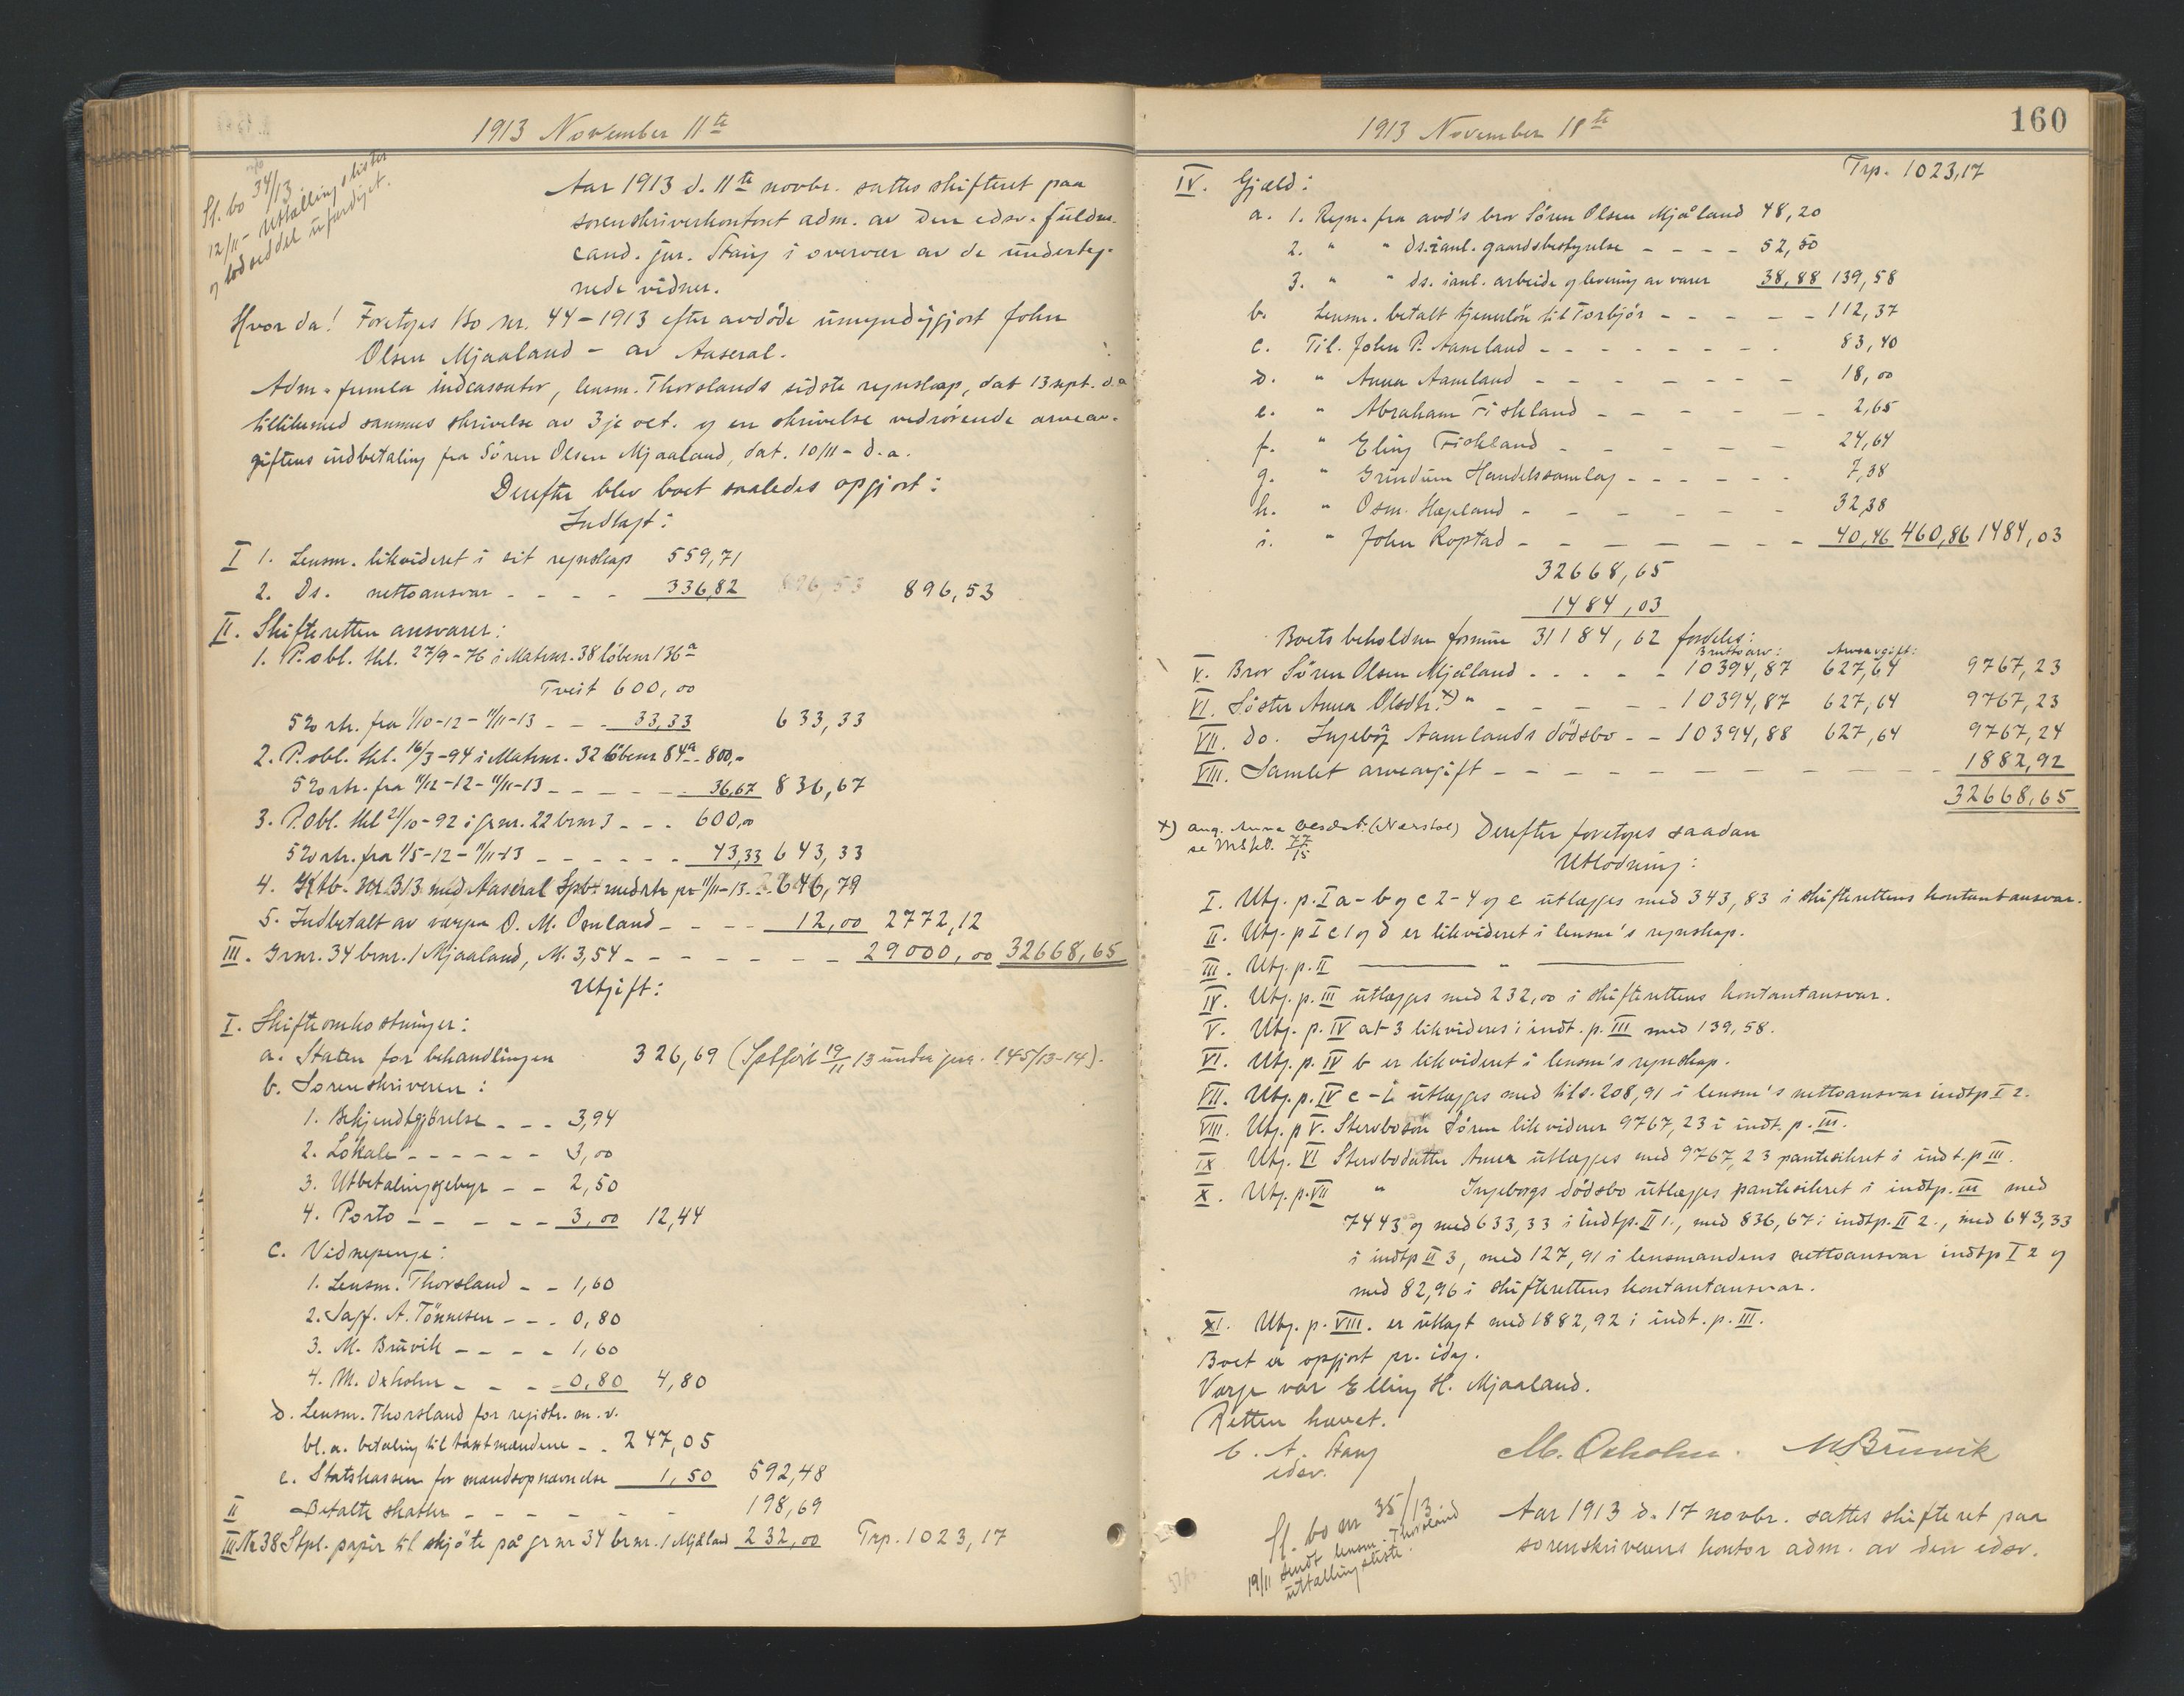 1913 November 11te
Sl. bo 34/13
12/11 - utstallingslister
og lodseddel utfærdiget.
Aar 1913 d. 11te novbr. sattes skifteret paa
sorenskriverkontoret adm. av den edsv. fuldm.
cand. jur. Stang i overvær av de underteg-
nede vidner.
Hvor da! Foretoges Bo nr. 44 - 1913 efter avdöde umyndiggjort John
Olsen Mjaaland - av Aaseral.
Adm. fremla indcassator, lensm. Thorslands sidste regnskap, dat 13 sept. d.a
tillikemed sammes skrivelse av 3je oct. og en skrivelse vedrörende arveav-
giftens indbetaling fra Sören Olsen Mjaaland, dat. 10/11 - d.a.
Derefter blev boet saaledes opgjort:
Indtægt:
I 1. Lensm. likvideret i sit regnskap 559,71
2. Ds. nettoansvar - - - - 336,82 896,53 896,53
II. Skifteretten ansvarer:
1. P.obl. thl. 27/9-76 i Matrnr. 38 löbenr 136a
Tveit 600,00
5% rte. fra 1/10-12 - 11/11-13 - - - 33,33 633,33
2. P.obl. thl. 16/3-94 i Matrnr. 32 löbenr 84a - 800,-
5% rtr. fra 11/12-12 - 11/11-13 - - - - - 36,67 836,67
3. P.obl. thl 21/10-92 i grnr. 22 brnr 3 - - - 600,00
5% rtr. fra 1/5-12 - 11/11-13 - - - - - 43,33 643,33
4. Ktb. nr. 313 med Aaseral Spb. med rte pr 11/11-13 - 646,79
5. Indbetalt av værgen O. M. Omland - - - - 12,00 2772,12
III. Grnr. 34 brnr. 1 Mjaaland, M. 3,54 - - - - - - - 29000,00 32668,65
Utgift:
I. Skifteomkostninger:
a. Staten for behandlingen 326,69 (Spkfört 19/11 13 under jnr. 145/13-14).
b. Sorenskriveren:
1. Bekjendtgjörelse - - - 3,94
2. Lokale - - - - - - 3,00
3. Utbetalingsgebyr - - 2,50
4. Porto - - - - - - 3,00 12,44
c. Vidnepenge:
1. Lensm. Thorsland - - 1,60
2. Sagf. A. Tönnesen - - - 0,80
3. M. Bruvik - - - - 1,60
4. M. Oxholm - - - - 0,80 4,80
d. Lensm. Thorsland for registr. m.v.
bl.a. betaling til takstmændene - . 247,05
e. Statskassen for mændsopnævnelse 1,50 592,48
II Betalte skatter - - - - - - 198,69
III Nr 38 Stpl. papir til skjöte på grnr 34 brnr. 1 Mjåland 232,00 Trp. 1023,17
1913 November 11te
160
Trp. 1023,17
IV. Gjæld:
a. 1. Regn. fra avd's bror Sören Olsen Mjåland 48,20
2. " " ds. i anl. gaardsbestyrelse - - - - 52,50
3. " " ds. i anl. arbeide og levering av varer 38,88 139,58
b. Lensm. betalt tjenerlön til Torbjör - - - - - 112,37
c. Til John P. Aamland - - - - - - - - 83,40
d. " Anna Aamland - - - - - - - 18,00
e. " Abraham Fiskland - - - - - - 2,65
f. " Eling Fiskland - - - - - 24,64
g. " Grindum Handelssamlag - - - - - - 7,38
h. " Osm. Hægeland - - - - - - 32,38
i. " John Ropstad - - - - - - - 40,46 460,86 1484,03
32668,65
1484,03
Boets beholdne formue 31184,62 fordeles:
Bruttoarv: Arveavgift:
V. Bror Sören Olsen Mjåland - - - - - 10394,87 627,64 9767,23
VI. Söster Anna Olsdtr. x) " - - - - - 10394,87 627,64 9767,23
VII. Do. Ingeborg Aamlands dödsbo - - 10394,88 627,64 9767,24
VIII. Samlet arveavgift - - - - - - - - - - - 1882,92
32668,65
x) ang. Anna Olesdat. (Nerstol) Derefter foretoges saadan
se 77/15
Utlodning:
I. Utg. p. I a - b og c 2-4 og e utlægges med 343,83 i skifterettens kontantansvar.
II. Utg. p I c 1 og d er likvideret i lensm's regnskap.
III. Utg. p. II - " -
IV. Utg. p. III utlægges med 232,00 i skifterettens kontantansvar.
V. Utg. p. IV a 1-3 likvideres i indt. p. III med 139,58.
VI. Utg. p. IV b er likvideret i lensm's regnskap.
VII. Utg. p. IV c - i utlægges med tils. 208,91 i lensm's nettoansvar indtp I 2.
VIII. Utg. p V. Stervbosön Sören likviderer 9767,23 i indt. p. III.
IX Utg. VI Stervbodatter Anna utlægges med 9767,23 pantesikret i indt. p III.
X. Utg. p. VII " Ingeborgs dödsbo utlægges pantesikret i indtp. III med
7443 og med 633,33 i indtp. II 1., med 836,67 i indtp. II 2., med 643,33
i indtp II 3, med 127,91 i lensmandens nettoansvar indtp I 2 og
med 82,96 i skifterettens kontantansvar.
XI. Utg. p. VIII. er utlagt med 1882,92 i indt. p. III.
Boet er opgjort pr. idag.
Værge var Elling H. Mjaaland.
Retten hævet.
C. A. Stang
edsv.
M. Oxholm. M Bruvik
Sl. bo nr 35/13.
19/11 sendt lensm. Thorsland
utstallingsliste.
Aar 1913 d. 17 novbr. sattes skifteret paa
sorenskriverens kontor adm. av den edsv.